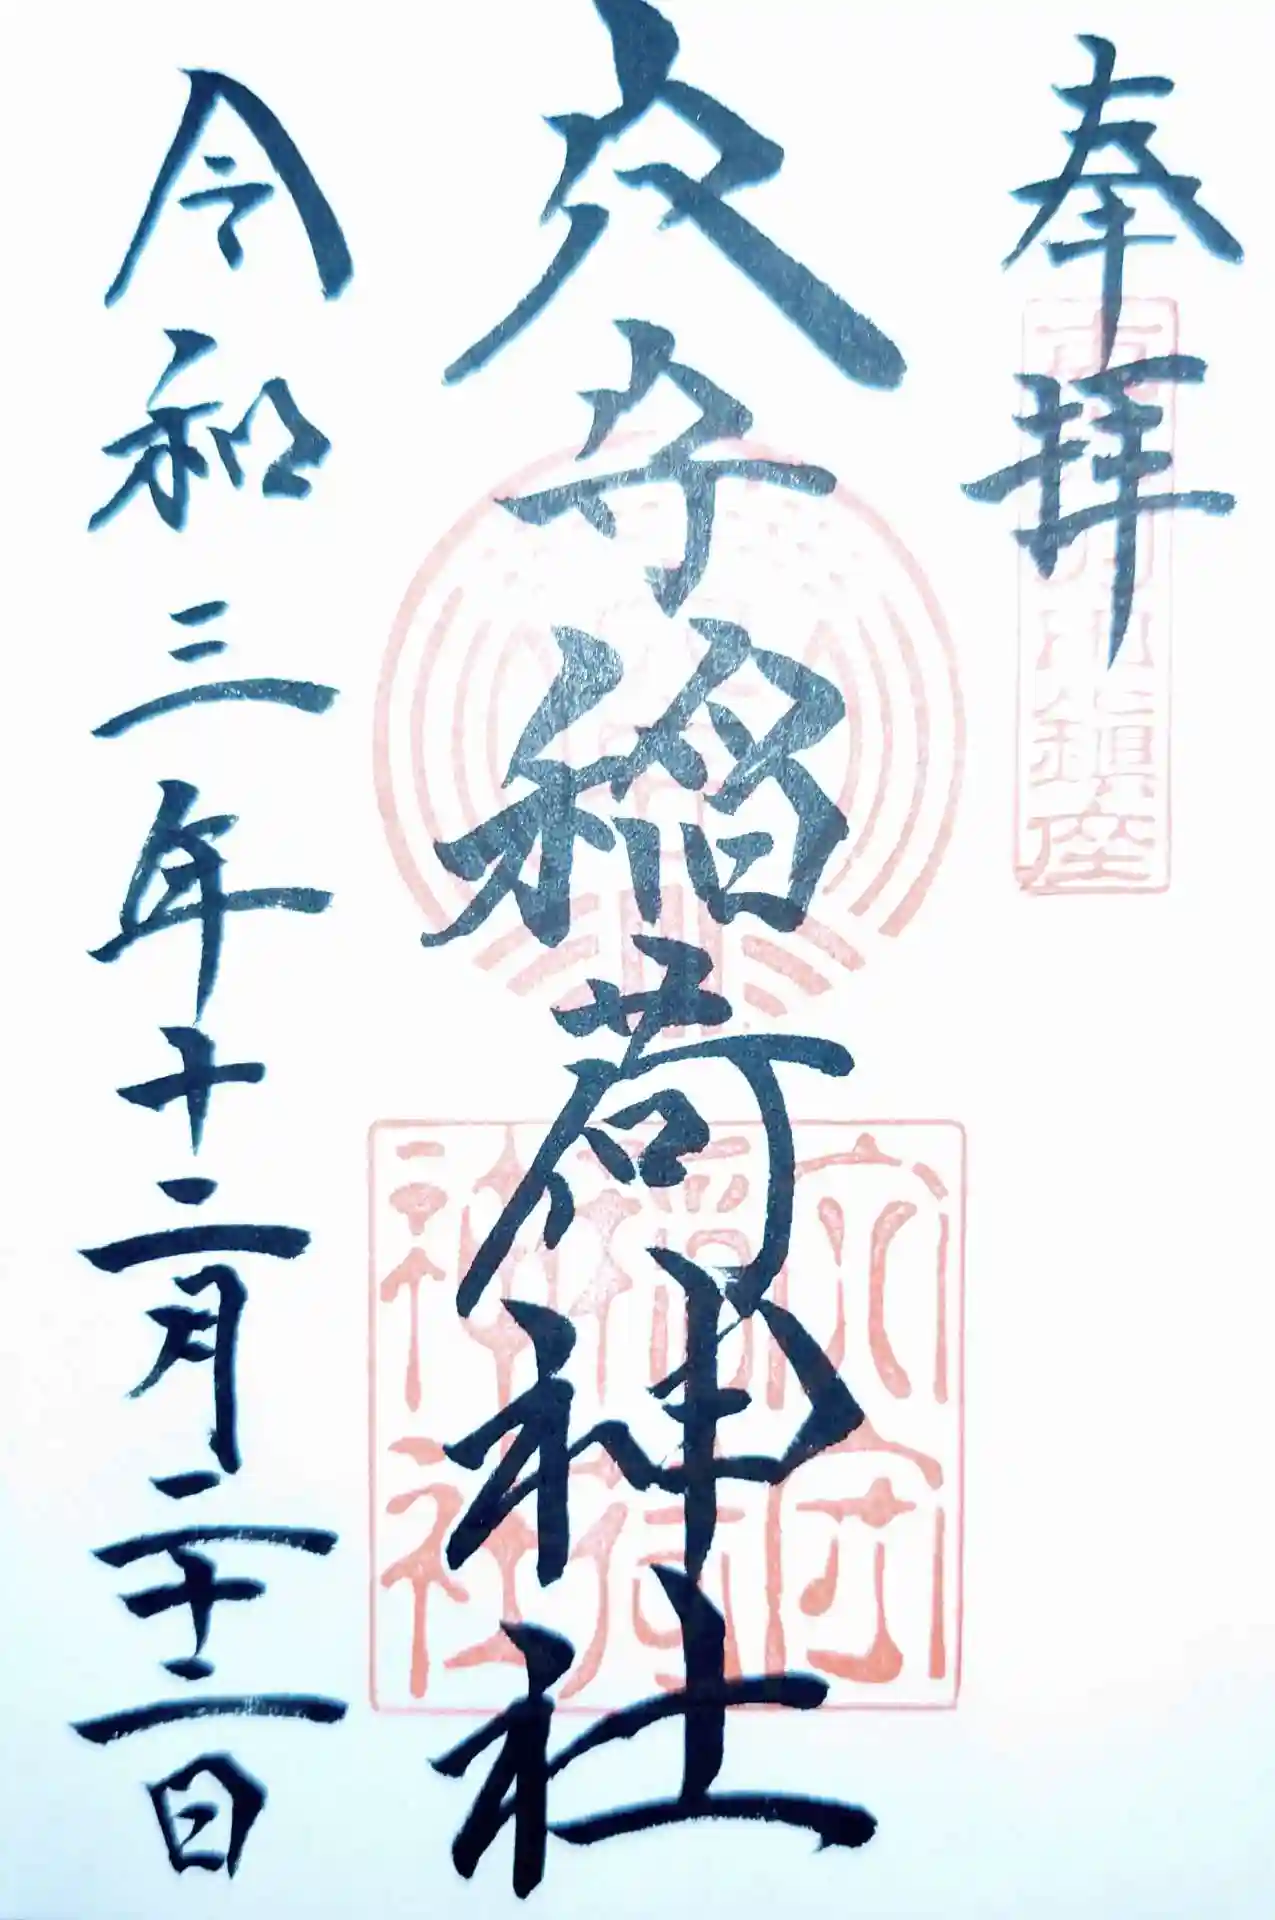 奉拝
鎮座
穴守稲荷神社
穴守
稲荷
神社
令和三年十二月二十二日